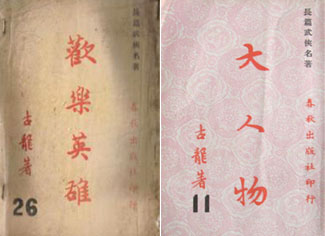 長篇武俠名著
歡樂英雄
春秋出版社印行
古龍著
26
長篇武俠名著
大人物
春秋出版社印行
古龍著
11